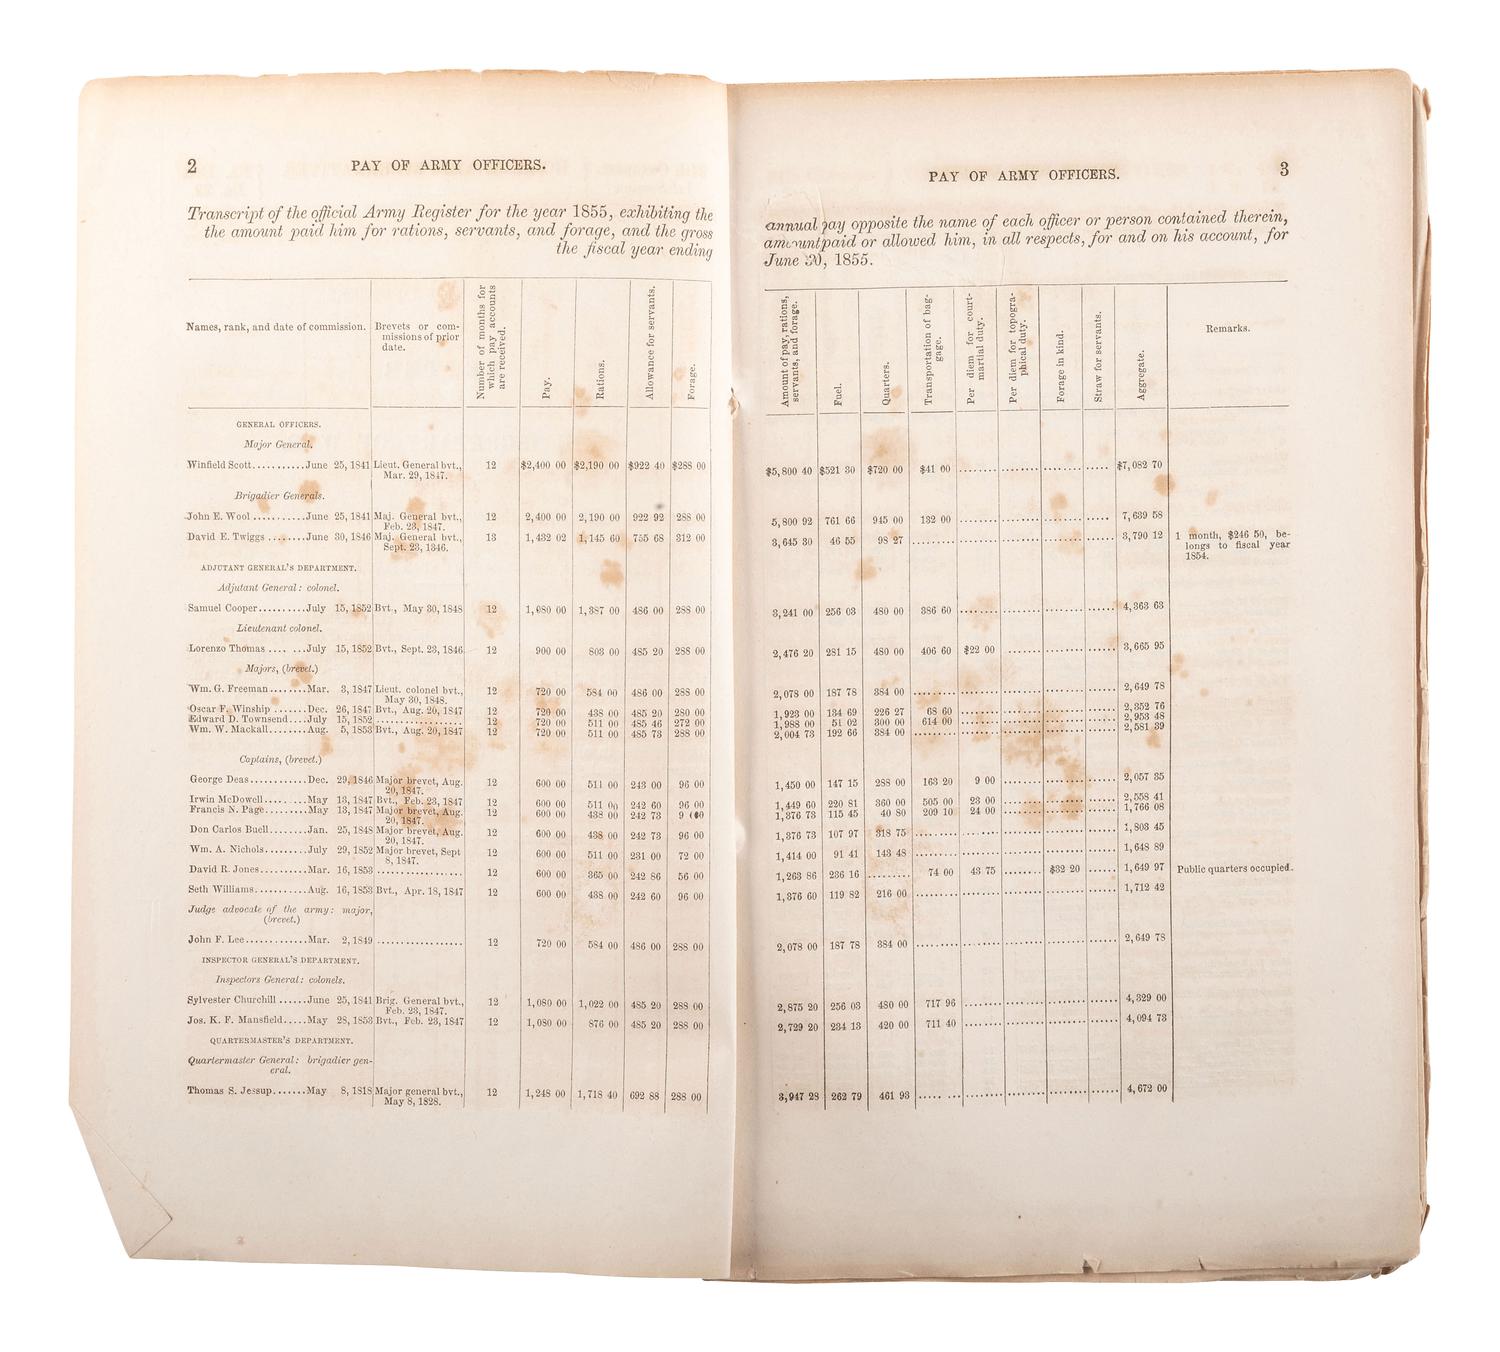 2 PAY OF ARMY OFFICERS.
Transcript of the official Army Register for the year 1855, exhibiting the
the amount paid him for rations, servants, and forage, and the gross
the fiscal year ending
Names, rank, and date of commission. Brevets or commissions of prior date. Number of months for which pay accounts are received. Pay. Rations. Allowance for servants. Forage.
GENERAL OFFICERS.
Major General.
Winfield Scott...........June 25, 1841 Lieut. General bvt., 12 $2,400 00 $2,190 00 $922 40 $288 00
Mar. 29, 1847.
Brigadier Generals.
John E. Wool ..........June 25, 1841 Maj. General bvt., 12 2,400 00 2,190 00 922 92 288 00
Feb. 23, 1847.
David E. Twiggs ........June 30, 1846 Maj. General bvt., 13 1,432 02 1,145 60 755 68 312 00
Sept. 23, 1846.
ADJUTANT GENERAL'S DEPARTMENT.
Adjutant General: colonel.
Samuel Cooper..........July 15, 1852 Bvt., May 30, 1848 12 1,080 00 1,387 00 486 00 288 00
Lieutenant colonel.
Lorenzo Thomas .... ...July 15, 1852 Bvt., Sept. 23, 1846 12 900 00 803 00 485 20 288 00
Majors, (brevet.)
Wm. G. Freeman........Mar. 3, 1847 Lieut. colonel bvt., 12 720 00 584 00 486 00 288 00
May 30, 1848.
Oscar F. Winship .......Dec. 26, 1847 Bvt., Aug. 20, 1847 12 720 00 438 00 485 20 280 00
Edward D. Townsend....July 15, 1852 .................. 12 720 00 511 00 485 46 272 00
Wm. W. Mackall........Aug. 5, 1853 Bvt., Aug. 20, 1847 12 720 00 511 00 485 73 288 00
Captains, (brevet.)
George Deas............Dec. 29, 1846 Major brevet, Aug. 12 600 00 511 00 243 00 96 00
20, 1847.
Irwin McDowell..... ...May 13, 1847 Bvt., Feb. 23, 1847 12 600 00 511 00 242 60 96 00
Francis N. Page........May 13, 1847 Major brevet, Aug. 12 600 00 438 00 242 73
20, 1847.
Don Carlos Buell.......Jan. 25, 1848 Major brevet, Aug. 12 600 00 438 00 242 73 96 00
20, 1847.
Wm. A. Nichols........July 29, 1852 Major brevet, Sept 12 600 00 511 00 231 00 72 00
8, 1847.
David R. Jones.........Mar. 16, 1853 .................. 12 600 00 365 00 242 86 56 00
Seth Williams..........Aug. 16, 1853 Bvt., Apr. 18, 1847 12 600 00 438 00 242 60 96 00
Judge advocate of the army: major,
(brevet.)
John F. Lee............Mar. 2, 1849 .................. 12 720 00 584 00 486 00 288 00
INSPECTOR GENERAL'S DEPARTMENT.
Inspectors General: colonels.
Sylvester Churchill ......June 25, 1841 Brig. General bvt., 12 1,080 00 1,022 00 485 20 288 00
Feb. 23, 1847.
Jos. K. F. Mansfield.....May 28, 1853 Bvt., Feb. 23, 1847 12 1,080 00 876 00 485 20 288 00
QUARTERMASTER'S DEPARTMENT.
Quartermaster General: brigadier gen-
eral.
Thomas S. Jessup.......May 8, 1818 Major general bvt., 12 1,248 00 1,718 40 692 88 288 00
May 8, 1828.
PAY OF ARMY OFFICERS. 3
annual pay opposite the name of each officer or person contained therein,
amount paid or allowed him, in all respects, for and on his account, for
June 30, 1855.
Amount of pay, rations, servants, and forage. Fuel. Quarters. Transportation of baggage. Per diem for court-martial duty. Per diem for topographical duty. Forage in kind. Straw for servants. Aggregate. Remarks.
$5,800 40 $521 30 $720 00 $41 00 ........ ........ ........ ..... $7,082 70
5,800 92 761 66 945 00 132 00 ........ ........ ........ ..... 7,639 58
3,645 30 46 55 98 27 ......... ........ ........ ........ ...... 3,790 12 1 month, $246 50, be-
longs to fiscal year
1854.
3,241 00 256 03 480 00 386 60 ........ ........ ........ ...... 4,363 63
2,476 20 281 15 480 00 406 60 $22 00 ........ ........ ...... 3,665 95
2,078 00 187 78 384 00 ......... ........ ........ ........ ...... 2,649 78
1,923 00 134 69 226 27 68 60 ........ ........ ........ ...... 2,352 76
1,988 00 51 02 300 00 614 00 ........ ........ ........ ...... 2,953 48
2,004 73 192 66 384 00 ......... ........ ........ ........ ...... 2,581 39
1,450 00 147 15 288 00 163 20 9 00 ........ ........ ...... 2,057 35
1,449 60 220 81 360 00 505 00 23 00 ........ ........ ...... 2,558 41
1,376 73 115 45 40 80 209 10 24 00 ........ ........ ...... 1,766 08
1,376 73 107 97 318 75 ......... ........ ........ ........ ...... 1,803 45
1,414 00 91 41 143 48 ......... ........ ........ ........ ...... 1,648 89
1,263 86 236 16 ......... 74 00 43 75 ........ $32 20 ...... 1,649 97 Public quarters occupied.
1,376 60 119 82 216 00 ......... ........ ........ ........ ...... 1,712 42
2,078 00 187 78 384 00 ......... ........ ........ ........ ...... 2,649 78
2,875 20 256 03 480 00 717 96 ........ ........ ........ ...... 4,329 00
2,729 20 234 13 420 00 711 40 ........ ........ ........ ...... 4,094 73
3,947 28 262 79 461 93 ..... ... ........ ........ ........ ...... 4,672 00